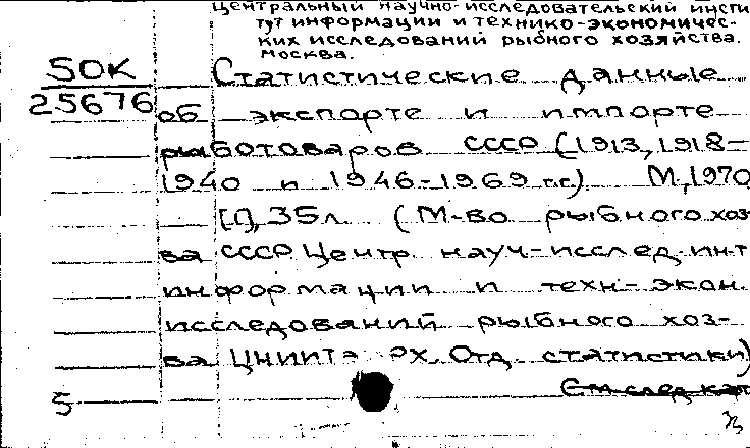 Центральный научно-исследовательский инсти
тут информации и технико-экономичес-
ких исследований рыбного хозяйства.
Москва.
50К
25676
Статистические данные
об экспорте и импорте
рыботоваров СССР (1913, 1918-
1940 и 1946-1969 г.г.) М., 1970
[1], 35л. (М-во рыбного хоз
ва СССР Центр. науч-исслед. ин-т
информации и техн-экон.
исследований рыбного хоз-
ва ЦНИИТЭ РХ. Отд. статистики)
См след кат
5